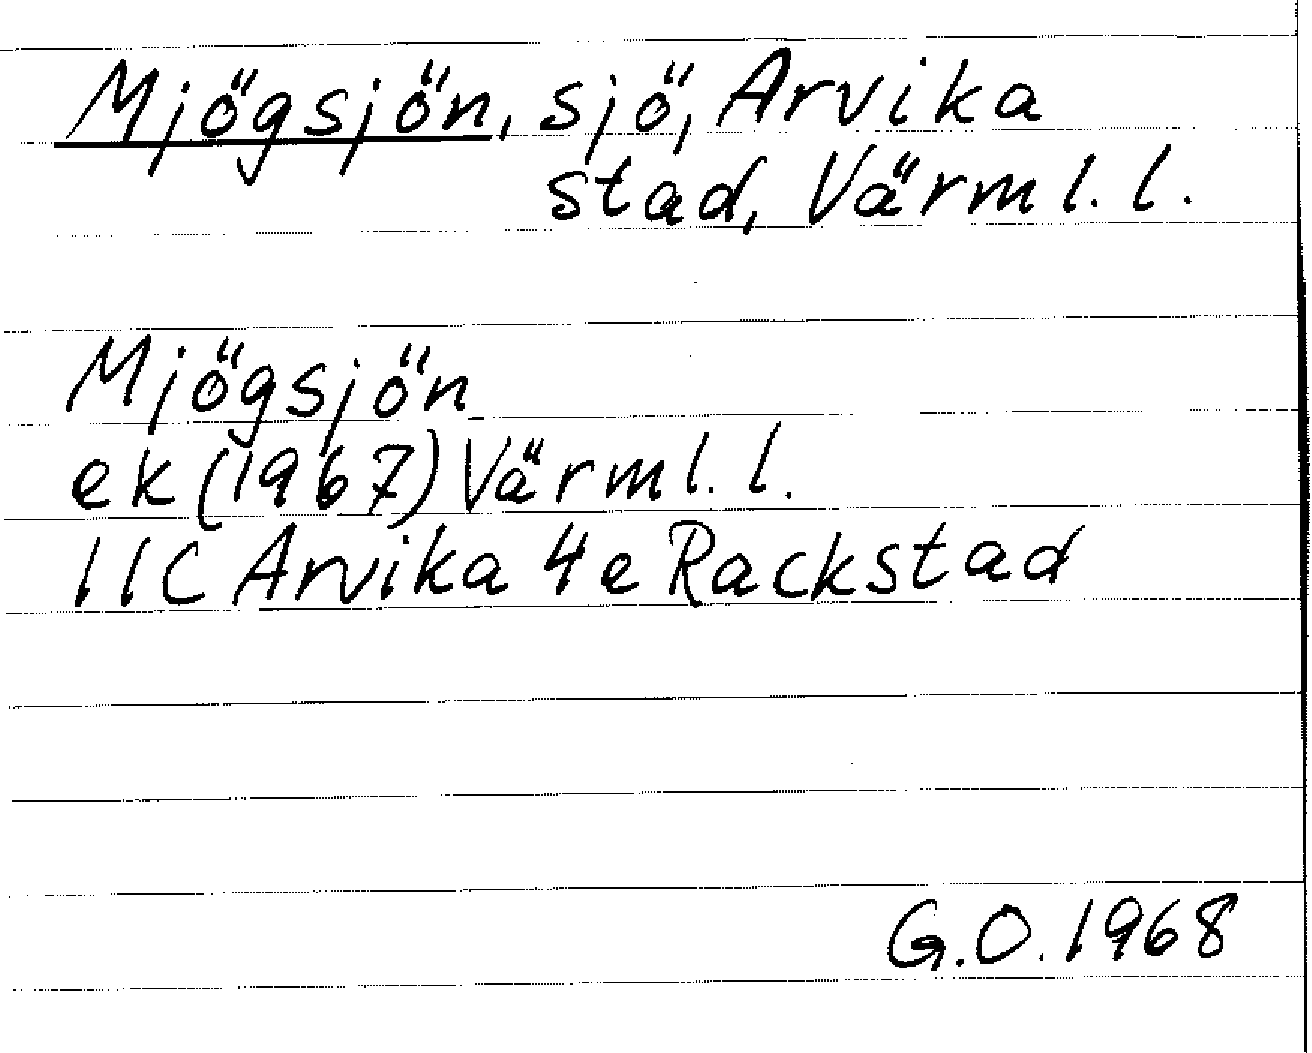 Mjögsjön, sjö, Arvika
stad, Värml. l.
Mjögsjön
ek (1967) Värml. l.
11C Arvika 4e Rackstad
G.O. 1968